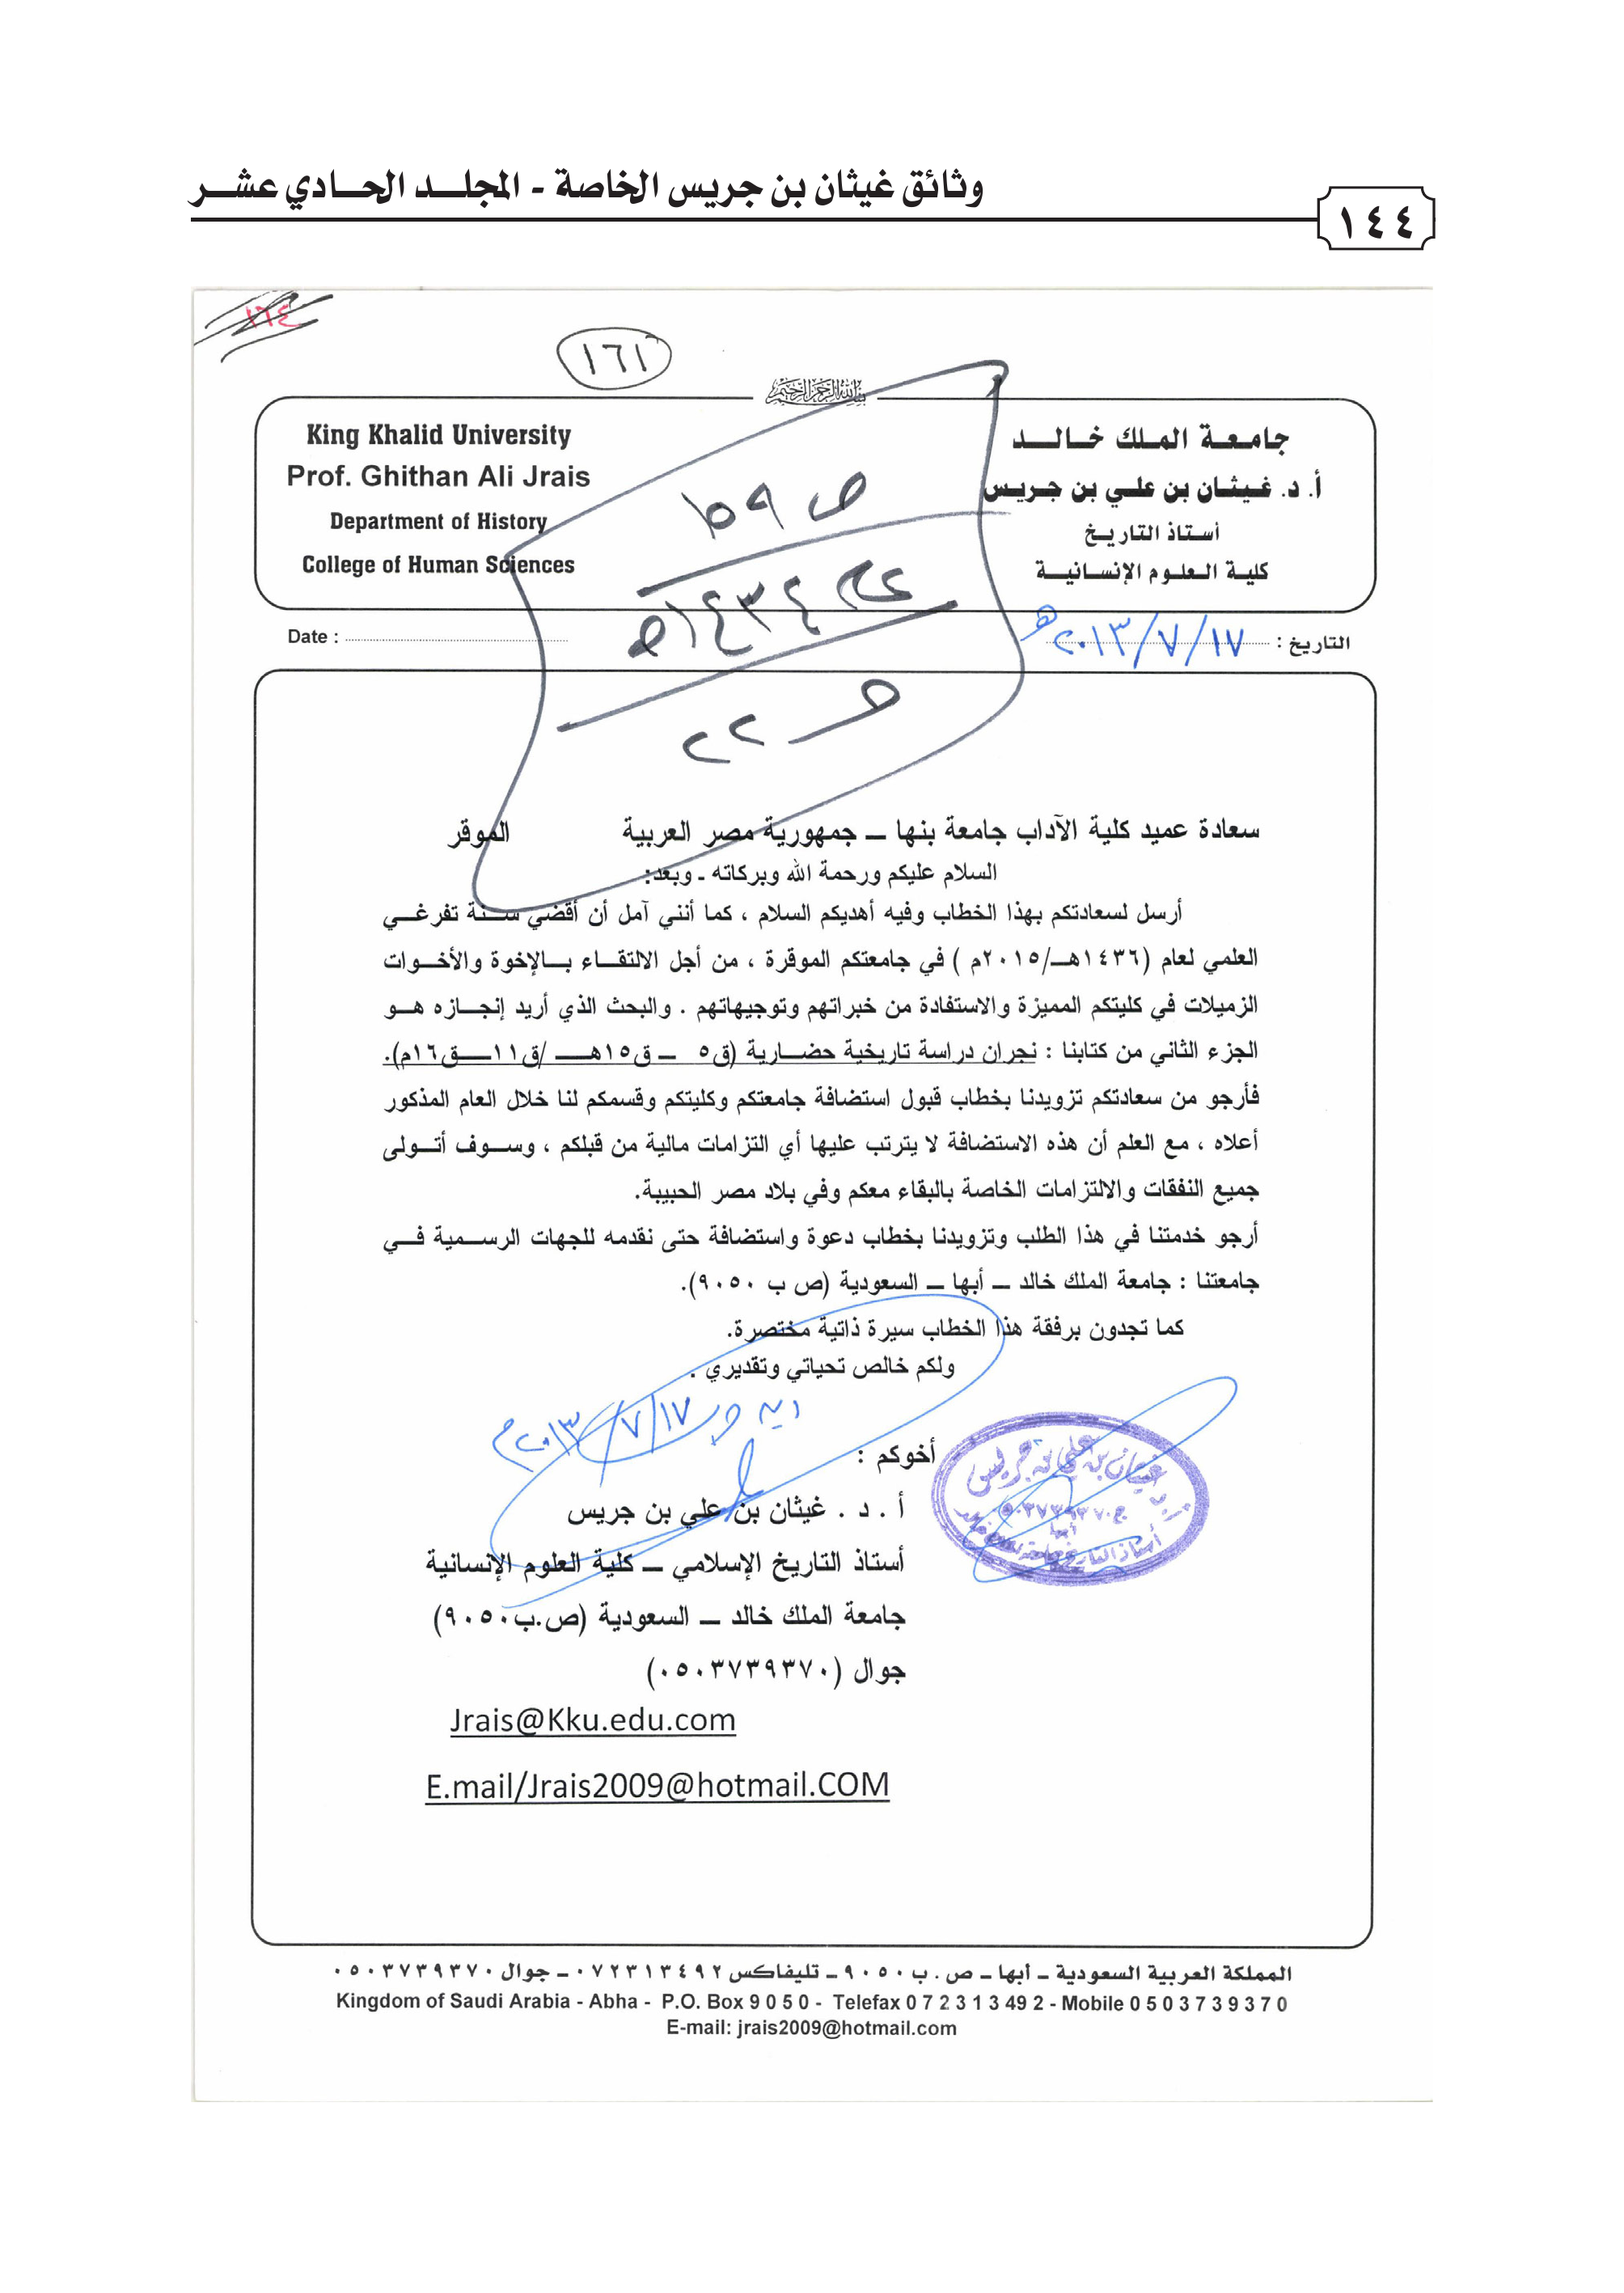 وثائق غيثان بن جريس الخاصة - المجلد الحادي عشر
١٤٤
١٦٤
١٦١
بسم الله الرحمن الرحيم
King Khalid University
Prof. Ghithan Ali Jrais
Department of History
College of Human Sciences
جامعة الملك خالد
أ. د. غيثان بن علي بن جريس
أستاذ التاريخ
كلية العلوم الإنسانية
ص ١٥٩
١٤٣٤هـ
ص ٢٢
Date :
التاريخ : ٢٠١٣/٧/١٧هـ
سعادة عميد كلية الآداب جامعة بنها ــ جمهورية مصر العربية الموقر
السلام عليكم ورحمة الله وبركاته ـ وبعد:
أرسل لسعادتكم بهذا الخطاب وفيه أهديكم السلام ، كما أنني آمل أن أقضي سنة تفرغي
العلمي لعام (١٤٣٦هـ/٢٠١٥م ) في جامعتكم الموقرة ، من أجل الالتقاء بالإخوة والأخوات
الزميلات في كليتكم المميزة والاستفادة من خبراتهم وتوجيهاتهم . والبحث الذي أريد إنجازه هو
الجزء الثاني من كتابنا : نجران دراسة تاريخية حضارية (ق٥ ــ ق١٥هـ /ق١١ــ ق١٦م).
فأرجو من سعادتكم تزويدنا بخطاب قبول استضافة جامعتكم وكليتكم وقسمكم لنا خلال العام المذكور
أعلاه ، مع العلم أن هذه الاستضافة لا يترتب عليها أي التزامات مالية من قبلكم ، وسوف أتولى
جميع النفقات والالتزامات الخاصة بالبقاء معكم وفي بلاد مصر الحبيبة.
أرجو خدمتنا في هذا الطلب وتزويدنا بخطاب دعوة واستضافة حتى نقدمه للجهات الرسمية في
جامعتنا : جامعة الملك خالد ــ أبها ــ السعودية (ص ب ٩٠٥٠).
كما تجدون برفقة هذا الخطاب سيرة ذاتية مختصرة.
ولكم خالص تحياتي وتقديري .
٢٠١٣/٧/١٧م
أخوكم :
غيثان بن علي بن جريس
ج ٠٥٠٣٧٣٩٣٧٠
أبها
أ . د . غيثان بن علي بن جريس
أستاذ التاريخ الإسلامي ــ كلية العلوم الإنسانية
جامعة الملك خالد ــ السعودية (ص.ب٩٠٥٠)
جوال (٠٥٠٣٧٣٩٣٧٠)
Jrais@Kku.edu.com
E.mail/Jrais2009@hotmail.COM
المملكة العربية السعودية ــ أبها ــ ص . ب ٩٠٥٠ ــ تليفاكس ٠٧٢٣١٣٤٩٢ ــ جوال ٠٥٠٣٧٣٩٣٧٠
Kingdom of Saudi Arabia - Abha - P.O. Box 9 0 5 0 - Telefax 0 7 2 3 1 3 49 2 - Mobile 0 5 0 3 7 3 9 3 7 0
E-mail: jrais2009@hotmail.com